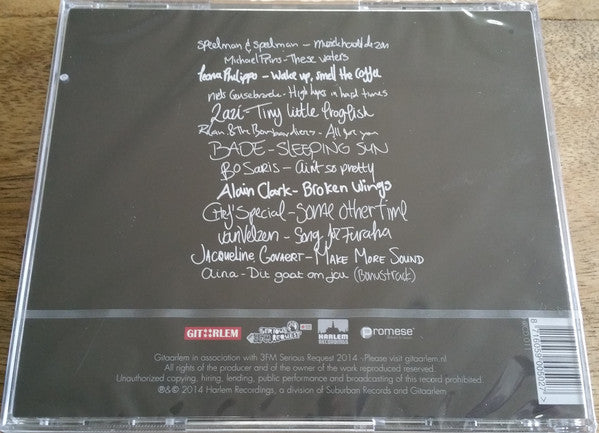 Speelman & Speelman - Muziek houdt de zon
Michael Prins - These waters
Leona Philippo - Wake up, smell the coffee
Niels Geusebroek - High hopes in hard times
Zazi - Tiny little frogfish
Rilan & the Bombardiers - All for you
BADE - SLEEPING SUN
Bo Saris - Ain't so pretty
Alain Clark - Broken Wings
City's Special - Some Other Time
VanVelzen - Song for Furaha
Jacqueline Govaert - Make More Sound
Aina - Dit gaat om jou (Bonustrack)
GITAARLEM
SERIOUS REQUEST
HARLEM
RECORDINGS
promese
Gitaarlem in association with 3FM Serious Request 2014. Please visit gitaarlem.nl
All rights of the producer and of the owner of the work reproduced reserved.
Unauthorized copying, hiring, lending, public performance and broadcasting of this record prohibited.
℗&© 2014 Harlem Recordings, a division of Suburban Records and Gitaarlem